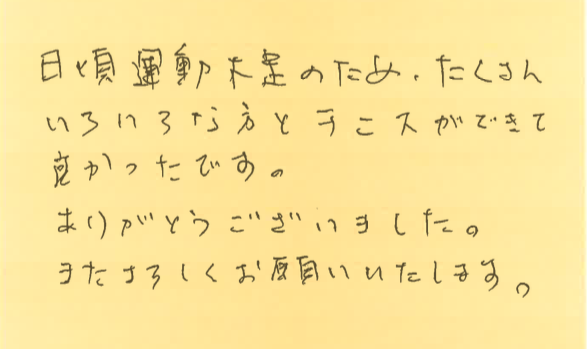 日頃運動不足のため、たくさん
いろいろな方とテニスができて
良かったです。
ありがとうございました。
またよろしくお願いいたします。